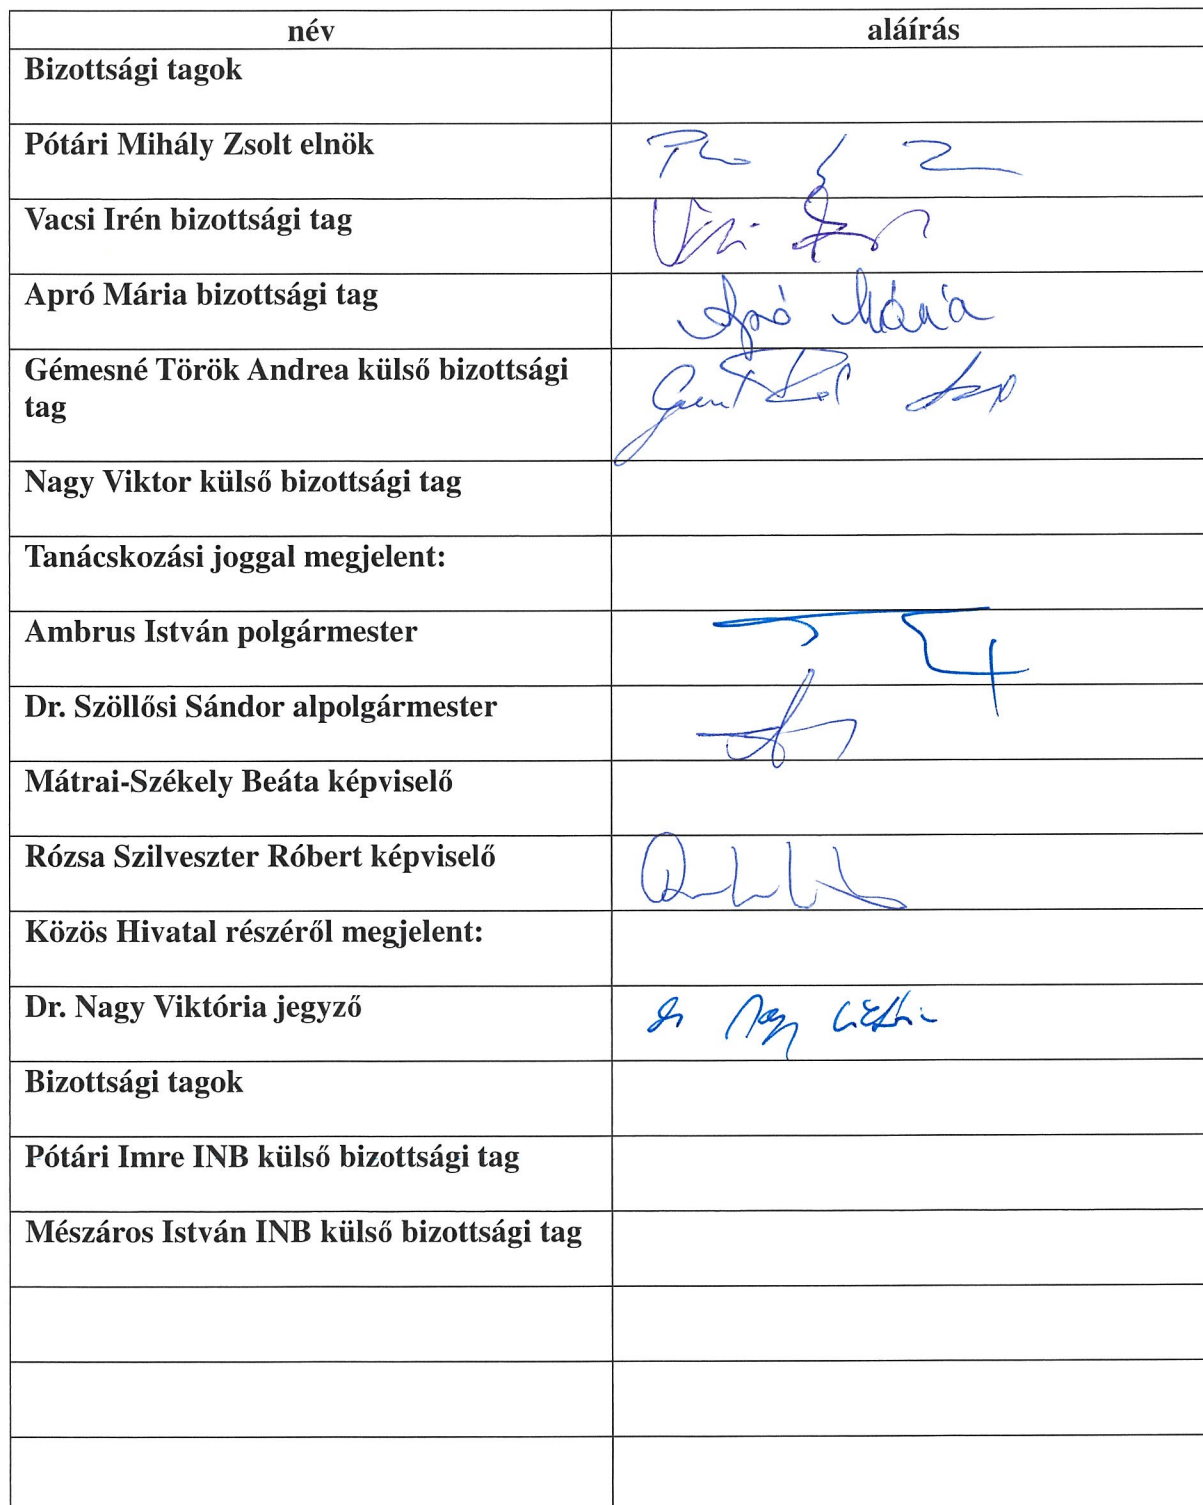 név aláírás
Bizottsági tagok
Pótári Mihály Zsolt elnök
Vacsi Irén bizottsági tag
Apró Mária bizottsági tag Apró Mária
Gémesné Török Andrea külső bizottsági
tag
Nagy Viktor külső bizottsági tag
Tanácskozási joggal megjelent:
Ambrus István polgármester
Dr. Szöllősi Sándor alpolgármester
Mátrai-Székely Beáta képviselő
Rózsa Szilveszter Róbert képviselő
Közös Hivatal részéről megjelent:
Dr. Nagy Viktória jegyző
Bizottsági tagok
Pótári Imre INB külső bizottsági tag
Mészáros István INB külső bizottsági tag